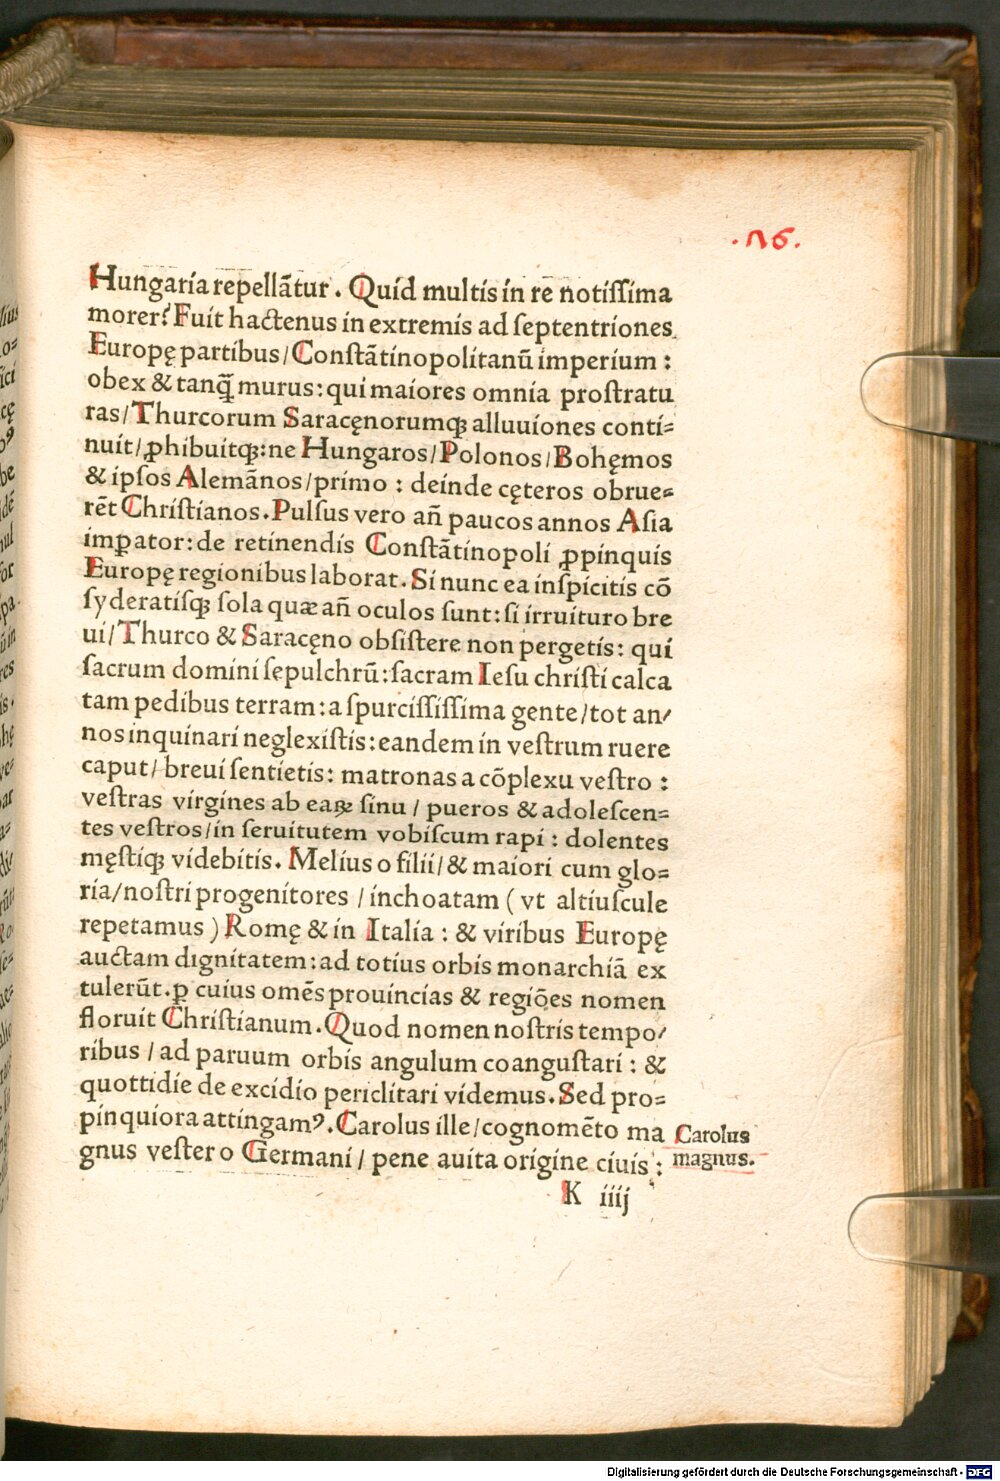 .126.
Hungaria repellãtur. Quid multis in re notiſſima
morer? Fuit hactenus in extremis ad ſeptentriones
Europę partibus/Conſtãtinopolitanũ imperium:
obex & tanq̃ murus: qui maiores omnia proſtratu
ras/Thurcorum Saracęnorumqꝫ alluuiones conti⸗
nuit/ꝓhibuitqꝫ: ne Hungaros/Polonos/Bohęmos
& ipſos Alemãnos/primo: deinde cęteros obrue⸗
rẽt Chriſtianos. Pulſus vero añ paucos annos Aſia
imꝑator: de retinendis Conſtãtinopoli ꝓpinquis
Europę regionibus laborat. Si nunc ea inſpicitis cõ
ſyderatiſqꝫ ſola quæ añ oculos ſunt: ſi irruituro bre
ui/Thurco & Saracęno obſiſtere non pergetis: qui
ſacrum domini ſepulchrũ: ſacram Ieſu chriſti calca
tam pedibus terram: a ſpurciſſiſſima gente/tot an/
nos inquinari neglexiſtis: eandem in veſtrum ruere
caput/breui ſentietis: matronas a cõplexu veſtro:
veſtras virgines ab eaꝝ ſinu / pueros & adoleſcen⸗
tes veſtros/in ſeruitutem vobiſcum rapi: dolentes
męſtiqꝫ videbitis. Melius o filii/& maiori cum glo⸗
ria/noſtri progenitores / inchoatam ( vt altiuſcule
repetamus ) Romę & in Italia: & viribus Europę
auctam dignitatem: ad totius orbis monarchiã ex
tulerũt. ꝑ cuius omẽs prouincias & regiões nomen
floruit Chriſtianum. Quod nomen noſtris tempo/
ribus / ad paruum orbis angulum coanguſtari: &
quottidie de excidio periclitari videmus. Sed pro⸗
pinquiora attingamꝰ. Carolus ille/cognomẽto ma
gnus veſter o Germani/ pene auita origine ciuis:
Carolus
magnus.
K iiij
Digitalisierung gefördert durch die Deutsche Forschungsgemeinschaft - DFG